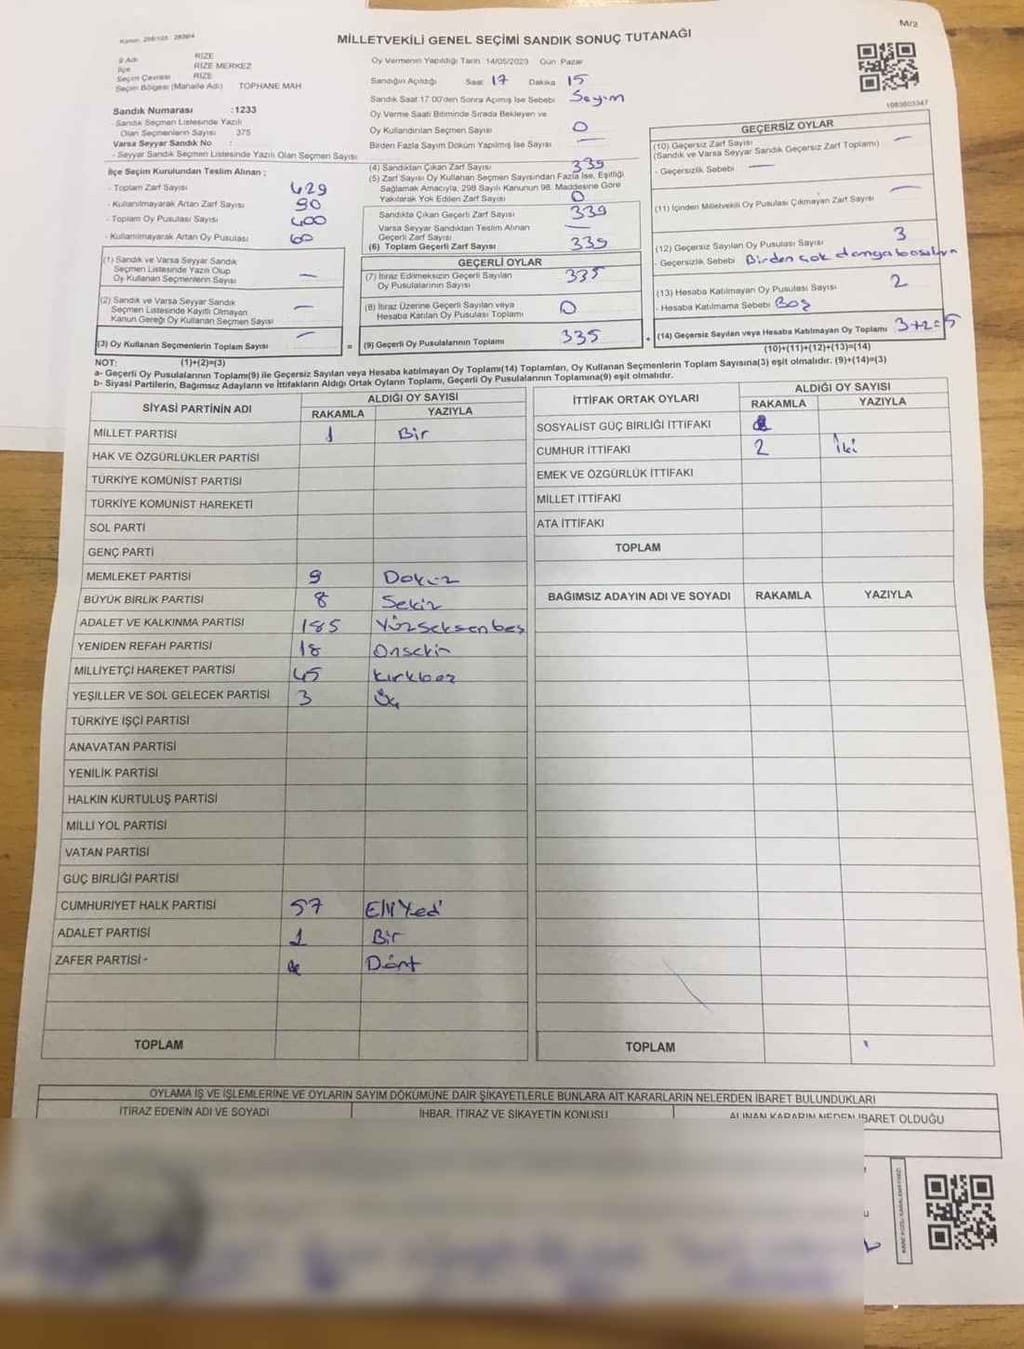 M/2
MİLLETVEKİLİ GENEL SEÇİMİ SANDIK SONUÇ TUTANAĞI
İl Adı RİZE
İlçe RİZE MERKEZ
Seçim Çevresi RİZE
Seçim Bölgesi (Mahalle Adı) TOPHANE MAH
Sandık Numarası :1233
- Sandık Seçmen Listesinde Yazılı
Olan Seçmenlerin Sayısı : 375
Varsa Seyyar Sandık No :
- Seyyar Sandık Seçmen Listesinde Yazılı Olan Seçmen Sayısı
İlçe Seçim Kurulundan Teslim Alınan ;
- Toplam Zarf Sayısı 429
- Kullanılmayarak Artan Zarf Sayısı 90
- Toplam Oy Pusulası Sayısı 400
- Kullanılmayarak Artan Oy Pusulası 60
(1) Sandık ve Varsa Seyyar Sandık
Seçmen Listesinde Yazılı Olup
Oy Kullanan Seçmenlerin Sayısı —
(2) Sandık ve Varsa Seyyar Sandık
Seçmen Listesinde Kayıtlı Olmayan
Kanun Gereği Oy Kullanan Seçmen Sayısı —
(3) Oy Kullanan Seçmenlerin Toplam Sayısı —
Oy Vermenin Yapıldığı Tarih 14/05/2023 Gün Pazar
Sandığın Açıldığı Saat 17 Dakika 15
Sandık Saat 17 00'den Sonra Açılmış İse Sebebi Sayım
Oy Verme Saati Bitiminde Sırada Bekleyen ve
Oy Kullandırılan Seçmen Sayısı 0
Birden Fazla Sayım Döküm Yapılmış İse Sayısı —
(4) Sandıktan Çıkan Zarf Sayısı 339
(5) Zarf Sayısı Oy Kullanan Seçmen Sayısından Fazla İse, Eşitliği
Sağlamak Amacıyla, 298 Sayılı Kanunun 98. Maddesine Göre
Yakılarak Yok Edilen Zarf Sayısı 0
Sandıkta Çıkan Geçerli Zarf Sayısı 339
Varsa Seyyar Sandıktan Teslim Alınan
Geçerli Zarf Sayısı —
(6) Toplam Geçerli Zarf Sayısı 339
GEÇERLİ OYLAR
(7) İtiraz Edilmeksizin Geçerli Sayılan
Oy Pusulalarının Sayısı 335
(8) İtiraz Üzerine Geçerli Sayılan veya
Hesaba Katılan Oy Pusulası Toplamı 0
= (9) Geçerli Oy Pusulalarının Toplamı 335
1083603347
GEÇERSİZ OYLAR
(10) Geçersiz Zarf Sayısı —
(Sandık ve Varsa Seyyar Sandık Geçersiz Zarf Toplamı)
- Geçersizlik Sebebi —
(11) İçinden Milletvekili Oy Pusulası Çıkmayan Zarf Sayısı —
(12) Geçersiz Sayılan Oy Pusulası Sayısı 3
- Geçersizlik Sebebi Birden çok damga basılan
(13) Hesaba Katılmayan Oy Pusulası Sayısı 2
- Hesaba Katılmama Sebebi Boş
+ (14) Geçersiz Sayılan veya Hesaba Katılmayan Oy Toplamı 3+2=5
NOT: (1)+(2)=(3) (10)+(11)+(12)+(13)=(14)
a- Geçerli Oy Pusulalarının Toplamı(9) ile Geçersiz Sayılan veya Hesaba katılmayan Oy Toplamı(14) Toplamları, Oy Kullanan Seçmenlerin Toplam Sayısına(3) eşit olmalıdır. (9)+(14)=(3)
b- Siyasi Partilerin, Bağımsız Adayların ve İttifakların Aldığı Ortak Oyların Toplamı, Geçerli Oy Pusulalarının Toplamına(9) eşit olmalıdır.
SİYASİ PARTİNİN ADI ALDIĞI OY SAYISI
RAKAMLA YAZIYLA
MİLLET PARTİSİ 1 Bir
HAK VE ÖZGÜRLÜKLER PARTİSİ
TÜRKİYE KOMÜNİST PARTİSİ
TÜRKİYE KOMÜNİST HAREKETİ
SOL PARTİ
GENÇ PARTİ
MEMLEKET PARTİSİ 9 Dokuz
BÜYÜK BİRLİK PARTİSİ 8 Sekiz
ADALET VE KALKINMA PARTİSİ 185 Yüzseksenbeş
YENİDEN REFAH PARTİSİ 18 Onsekiz
MİLLİYETÇİ HAREKET PARTİSİ 45 Kırkbeş
YEŞİLLER VE SOL GELECEK PARTİSİ 3 Üç
TÜRKİYE İŞÇİ PARTİSİ
ANAVATAN PARTİSİ
YENİLİK PARTİSİ
HALKIN KURTULUŞ PARTİSİ
MİLLİ YOL PARTİSİ
VATAN PARTİSİ
GÜÇ BİRLİĞİ PARTİSİ
CUMHURİYET HALK PARTİSİ 57 Elliyedi
ADALET PARTİSİ 1 Bir
ZAFER PARTİSİ - 4 Dört
TOPLAM
İTTİFAK ORTAK OYLARI ALDIĞI OY SAYISI
RAKAMLA YAZIYLA
SOSYALİST GÜÇ BİRLİĞİ İTTİFAKI
CUMHUR İTTİFAKI 2 İki
EMEK VE ÖZGÜRLÜK İTTİFAKI
MİLLET İTTİFAKI
ATA İTTİFAKI
TOPLAM
BAĞIMSIZ ADAYIN ADI VE SOYADI RAKAMLA YAZIYLA
TOPLAM
OYLAMA İŞ VE İŞLEMLERİNE VE OYLARIN SAYIM DÖKÜMÜNE DAİR ŞİKAYETLERLE BUNLARA AİT KARARLARIN NELERDEN İBARET BULUNDUKLARI
İTİRAZ EDENİN ADI VE SOYADI İHBAR, İTİRAZ VE ŞİKAYETİN KONUSU ALINAN KARARIN NEDEN İBARET OLDUĞU